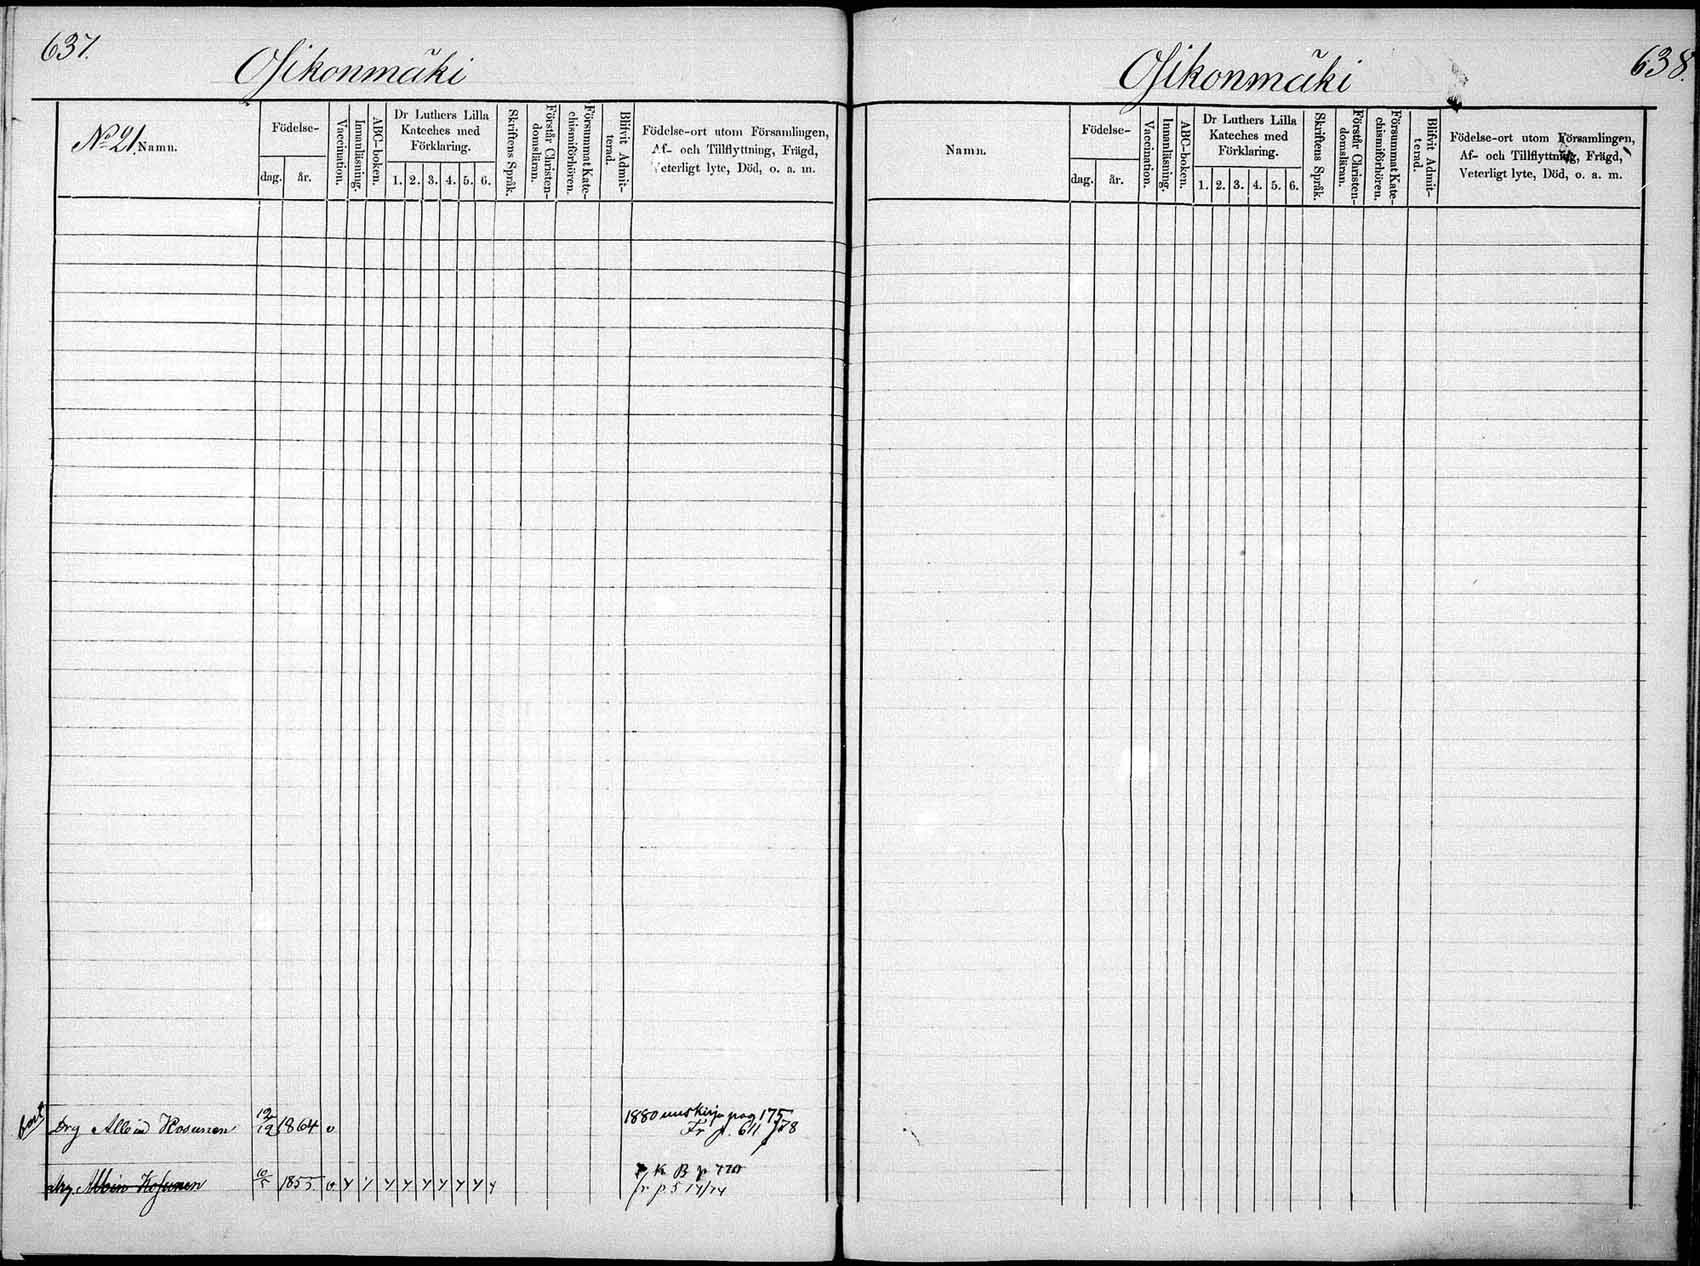 637.
Osikonmäki
No 21. Namn.
Födelse-
dag. år.
Vaccination.
Innanläsning.
ABC-boken.
Dr Luthers Lilla
Kateches med
Förklaring.
1. 2. 3. 4. 5. 6.
Skriftens Språk.
Förstår Christen-
domsläran.
Försummat Kate-
chismiförhören.
Blifvit Admit-
terad.
Födelse-ort utom Församlingen,
Af- och Tillflyttning, Frägd,
Veterligt lyte, Död, o. a. m.
bort
Drg Albin Kosunen 12/12 1864 v 1880 uuskirja pag 175
Fr p. 611 78
drg Albin Kosunen 10/5 1855
K B p 770
fr p 5 14/74
638.
Osikonmäki
Namn.
Födelse-
dag. år.
Vaccination.
Innanläsning.
ABC-boken.
Dr Luthers Lilla
Kateches med
Förklaring.
1. 2. 3. 4. 5. 6.
Skriftens Språk.
Förstår Christen-
domsläran.
Försummat Kate-
chismiförhören.
Blifvit Admit-
terad.
Födelse-ort utom Församlingen,
Af- och Tillflyttning, Frägd,
Veterligt lyte, Död, o. a. m.